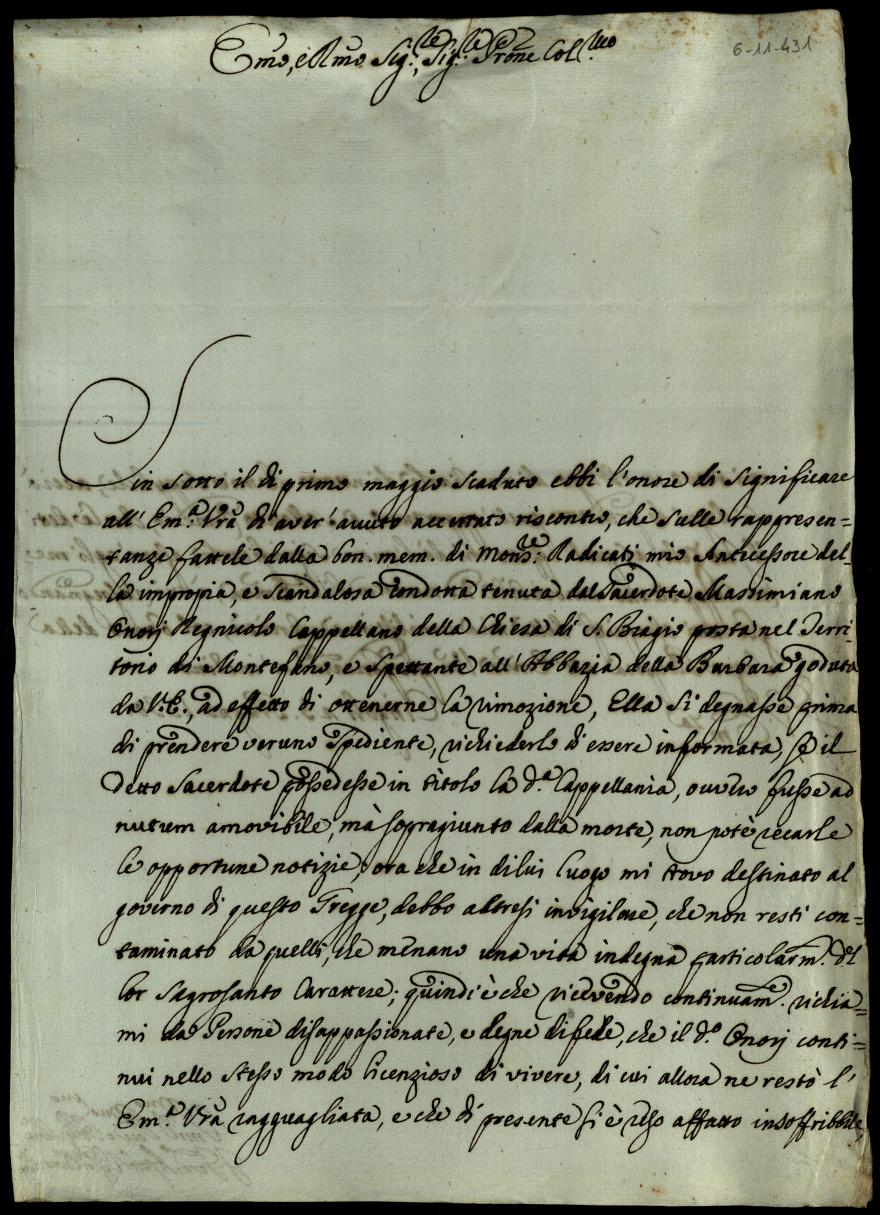 Emo, e Rmo Sig.re, Sig.re Prone Col.mo
6-11-431
Sin sotto il dì primo maggio scaduto ebbi l'onore di significare
all' Em.a Vrã d'aver' avuto accertato riscontro, che sulle rappresen=
tanze fattele dalla bon. mem. di Mons.re Radicati mio Antecessore del-
la impropria, e scandalosa condotta tenuta dal Sacerdote Massimiano
Onorj Regnicolo Cappellano della Chiesa di S. Biagio posta nel Terri-
torio di Montefano, e spettante all' Abbazia della Barbara goduta
da V.E., ad effetto di ottenerne la rimozione, Ella si degnasse prima
di prendere veruno espediente, richiederlo d'essere informata, se il
detto Sacerdote possedesse in titolo la d.a Cappellania, ovvero fusse ad
nutum amovibile, mà sopragiunto dalla morte, non potè recarle
le opportune notizie; ora che in di lui luogo mi trovo destinato al
governo di questo Gregge, debbo altresì invigilare, che non resti con=
taminato da quelli, che menano una vita indegna particolarm.e del
lor Sagrosanto Carattere; quindi è che ricevendo continuam.e richia=
mi da Persone disappassionate, e degne di fede, che il d.o Onorj conti=
nui nello stesso modo licenzioso di vivere, di cui allora ne restò l'
Em.a Vrã ragguagliata, e che di presente si è reso affatto insoffribbile,